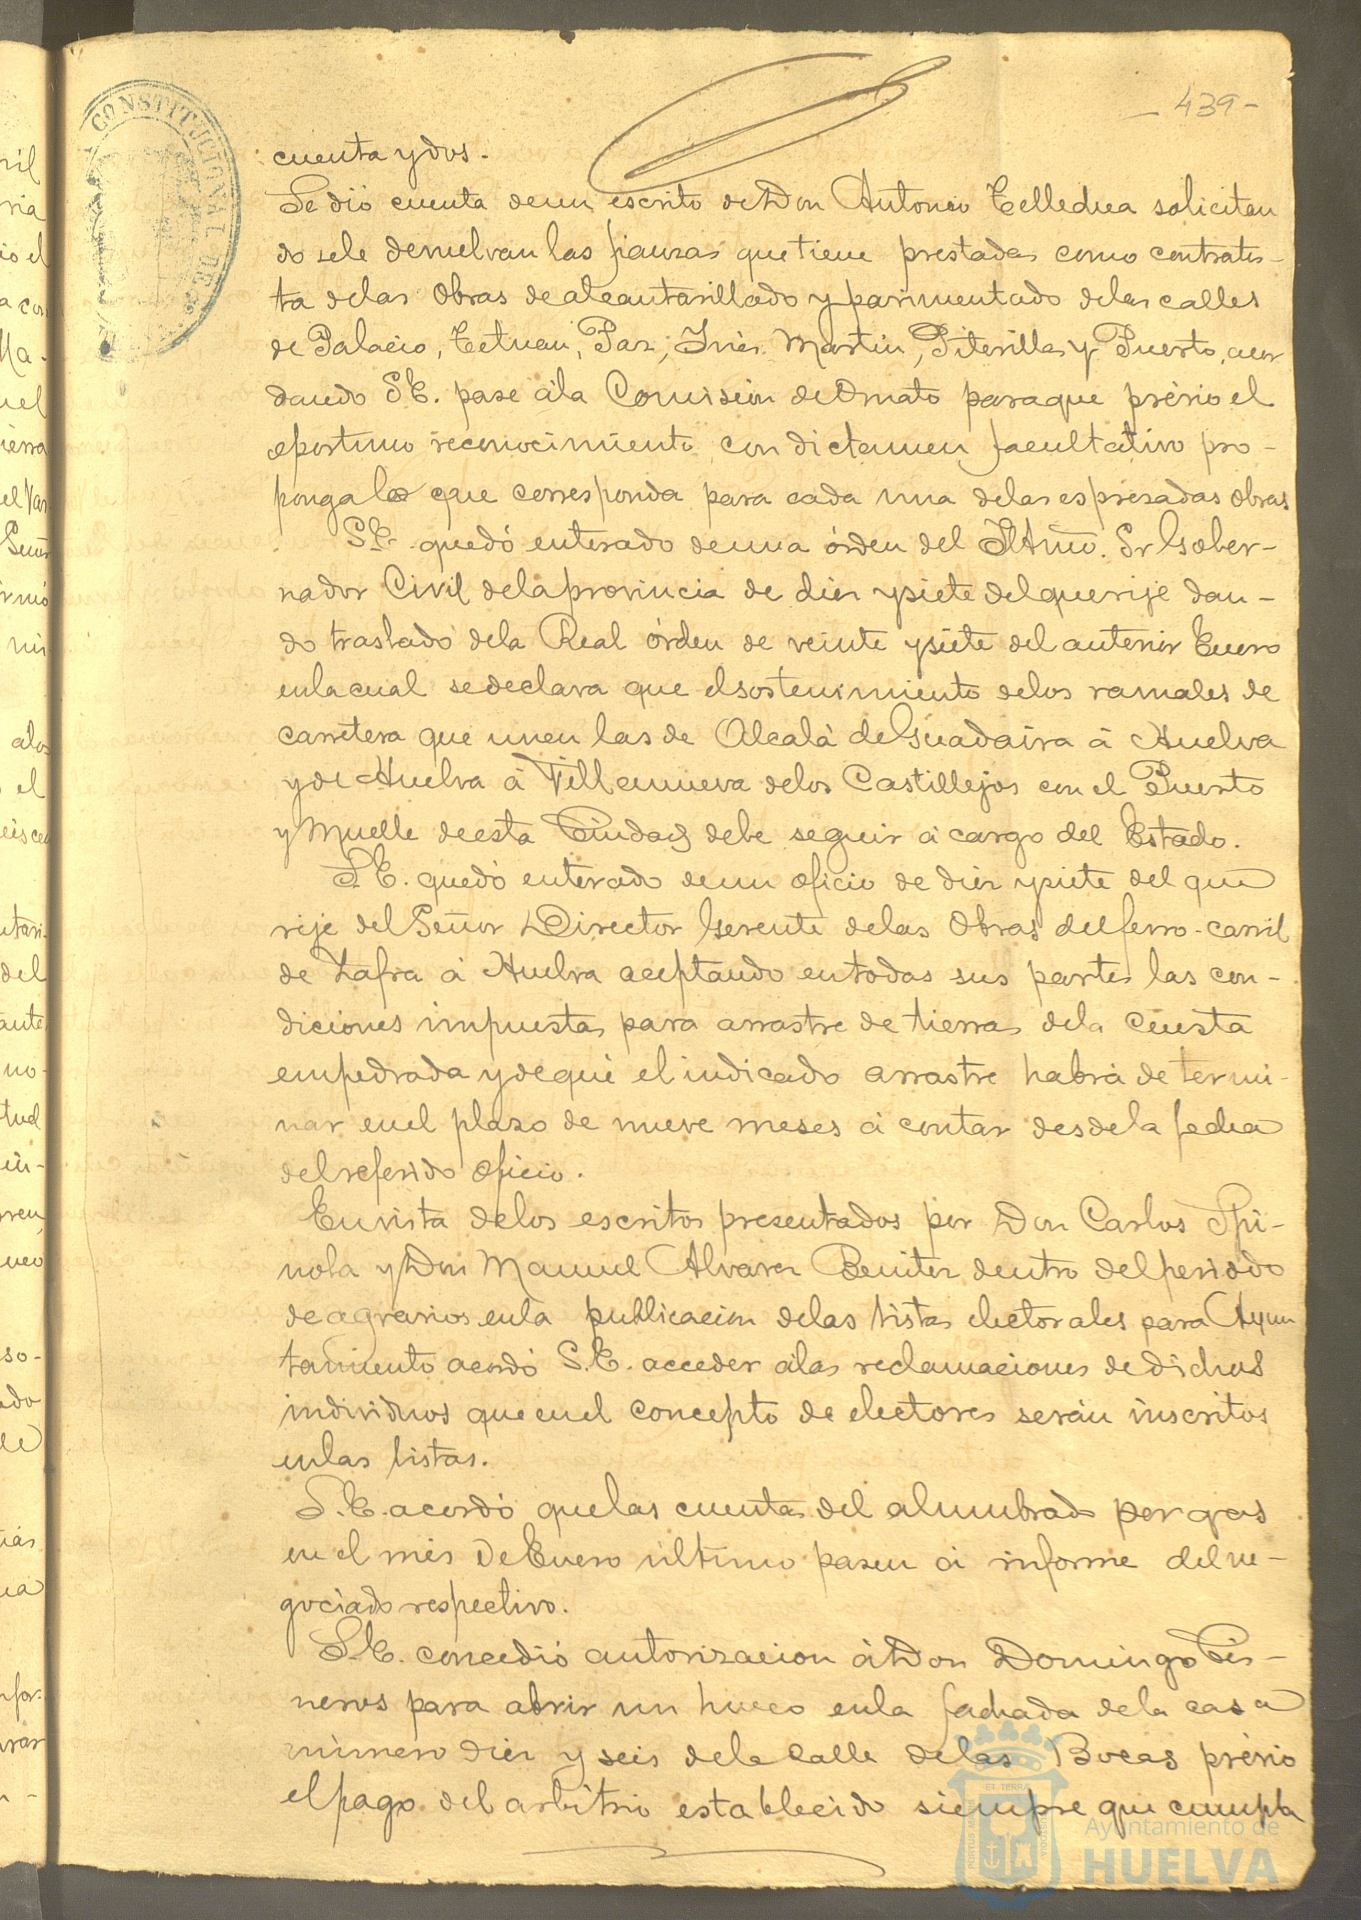 - 439 -
CONSTITUCIONAL DE
cuenta y dos.
Se dió cuenta de un escrito de Don Antonio Telledua solicitan
do se le devuelvan las fianzas que tiene prestadas como contratis-
ta de las Obras de alcantarillado y pavimentado de las calles
de Palacio, Tetuan, Paz, Inés Martin, Piterilla y Puerto, acor
dando S.E. pase á la Comision de Ornato para que prévio el
oportuno reconocimiento con dictamen facultativo pro-
ponga lo que corresponda para cada una de las espresadas obras
S.E. quedó enterado de una órden del Iltmo. Sr Gober-
nador Civil de la provincia de diez y siete del que rije dan-
do traslado de la Real órden de veinte y siete del anterior Enero
en la cual se declara que el sostenimiento de los ramales de
carretera que unen las de Alcalá de Guadaira á Huelva
y de Huelva á Villanueva de los Castillejos con el Puerto
y Muelle de esta Ciudad debe seguir á cargo del Estado.
S.E. quedó enterado de un oficio de diez y siete del que
rije del Señor Director Gerente de las Obras del ferro-carril
de Zafra á Huelva aceptando en todas sus partes las con-
diciones impuestas para arrastre de tierras de la Cuesta
empedrada y de que el indicado arrastre habrá de termi-
nar en el plazo de nueve meses á contar desde la fecha
del referido oficio.
En vista de los escritos presentados por Don Carlos Spi-
nola y Don Manuel Alvarez Benitez dentro del periodo
de agravios en la publicacion de las listas electorales para Ayun
tamiento acordó S.E. acceder á las reclamaciones de dichos
individuos que en el concepto de electores serán inscritos
en las listas.
S.E. acordó que las cuentas del alumbrado por gas
en el mes de Enero último pasen á informe del ne-
gociado respectivo.
S.E. concedió autorizacion á Don Domingo Cis-
neros para abrir un hueco en la fachada de la casa
número diez y seis de la Calle de las Bocas prévio
el pago del arbitrio establecido siempre que cumpla
Ayuntamiento de
HUELVA